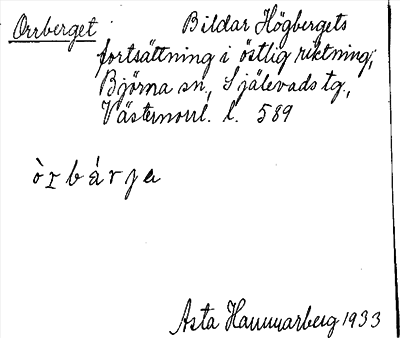 Orrberget Bildar Högbergets
fortsättning i östlig riktning;
Björna sn., Själevads tg.,
Västernorrl. l. 589
òrbárja
Asta Hammarberg 1933